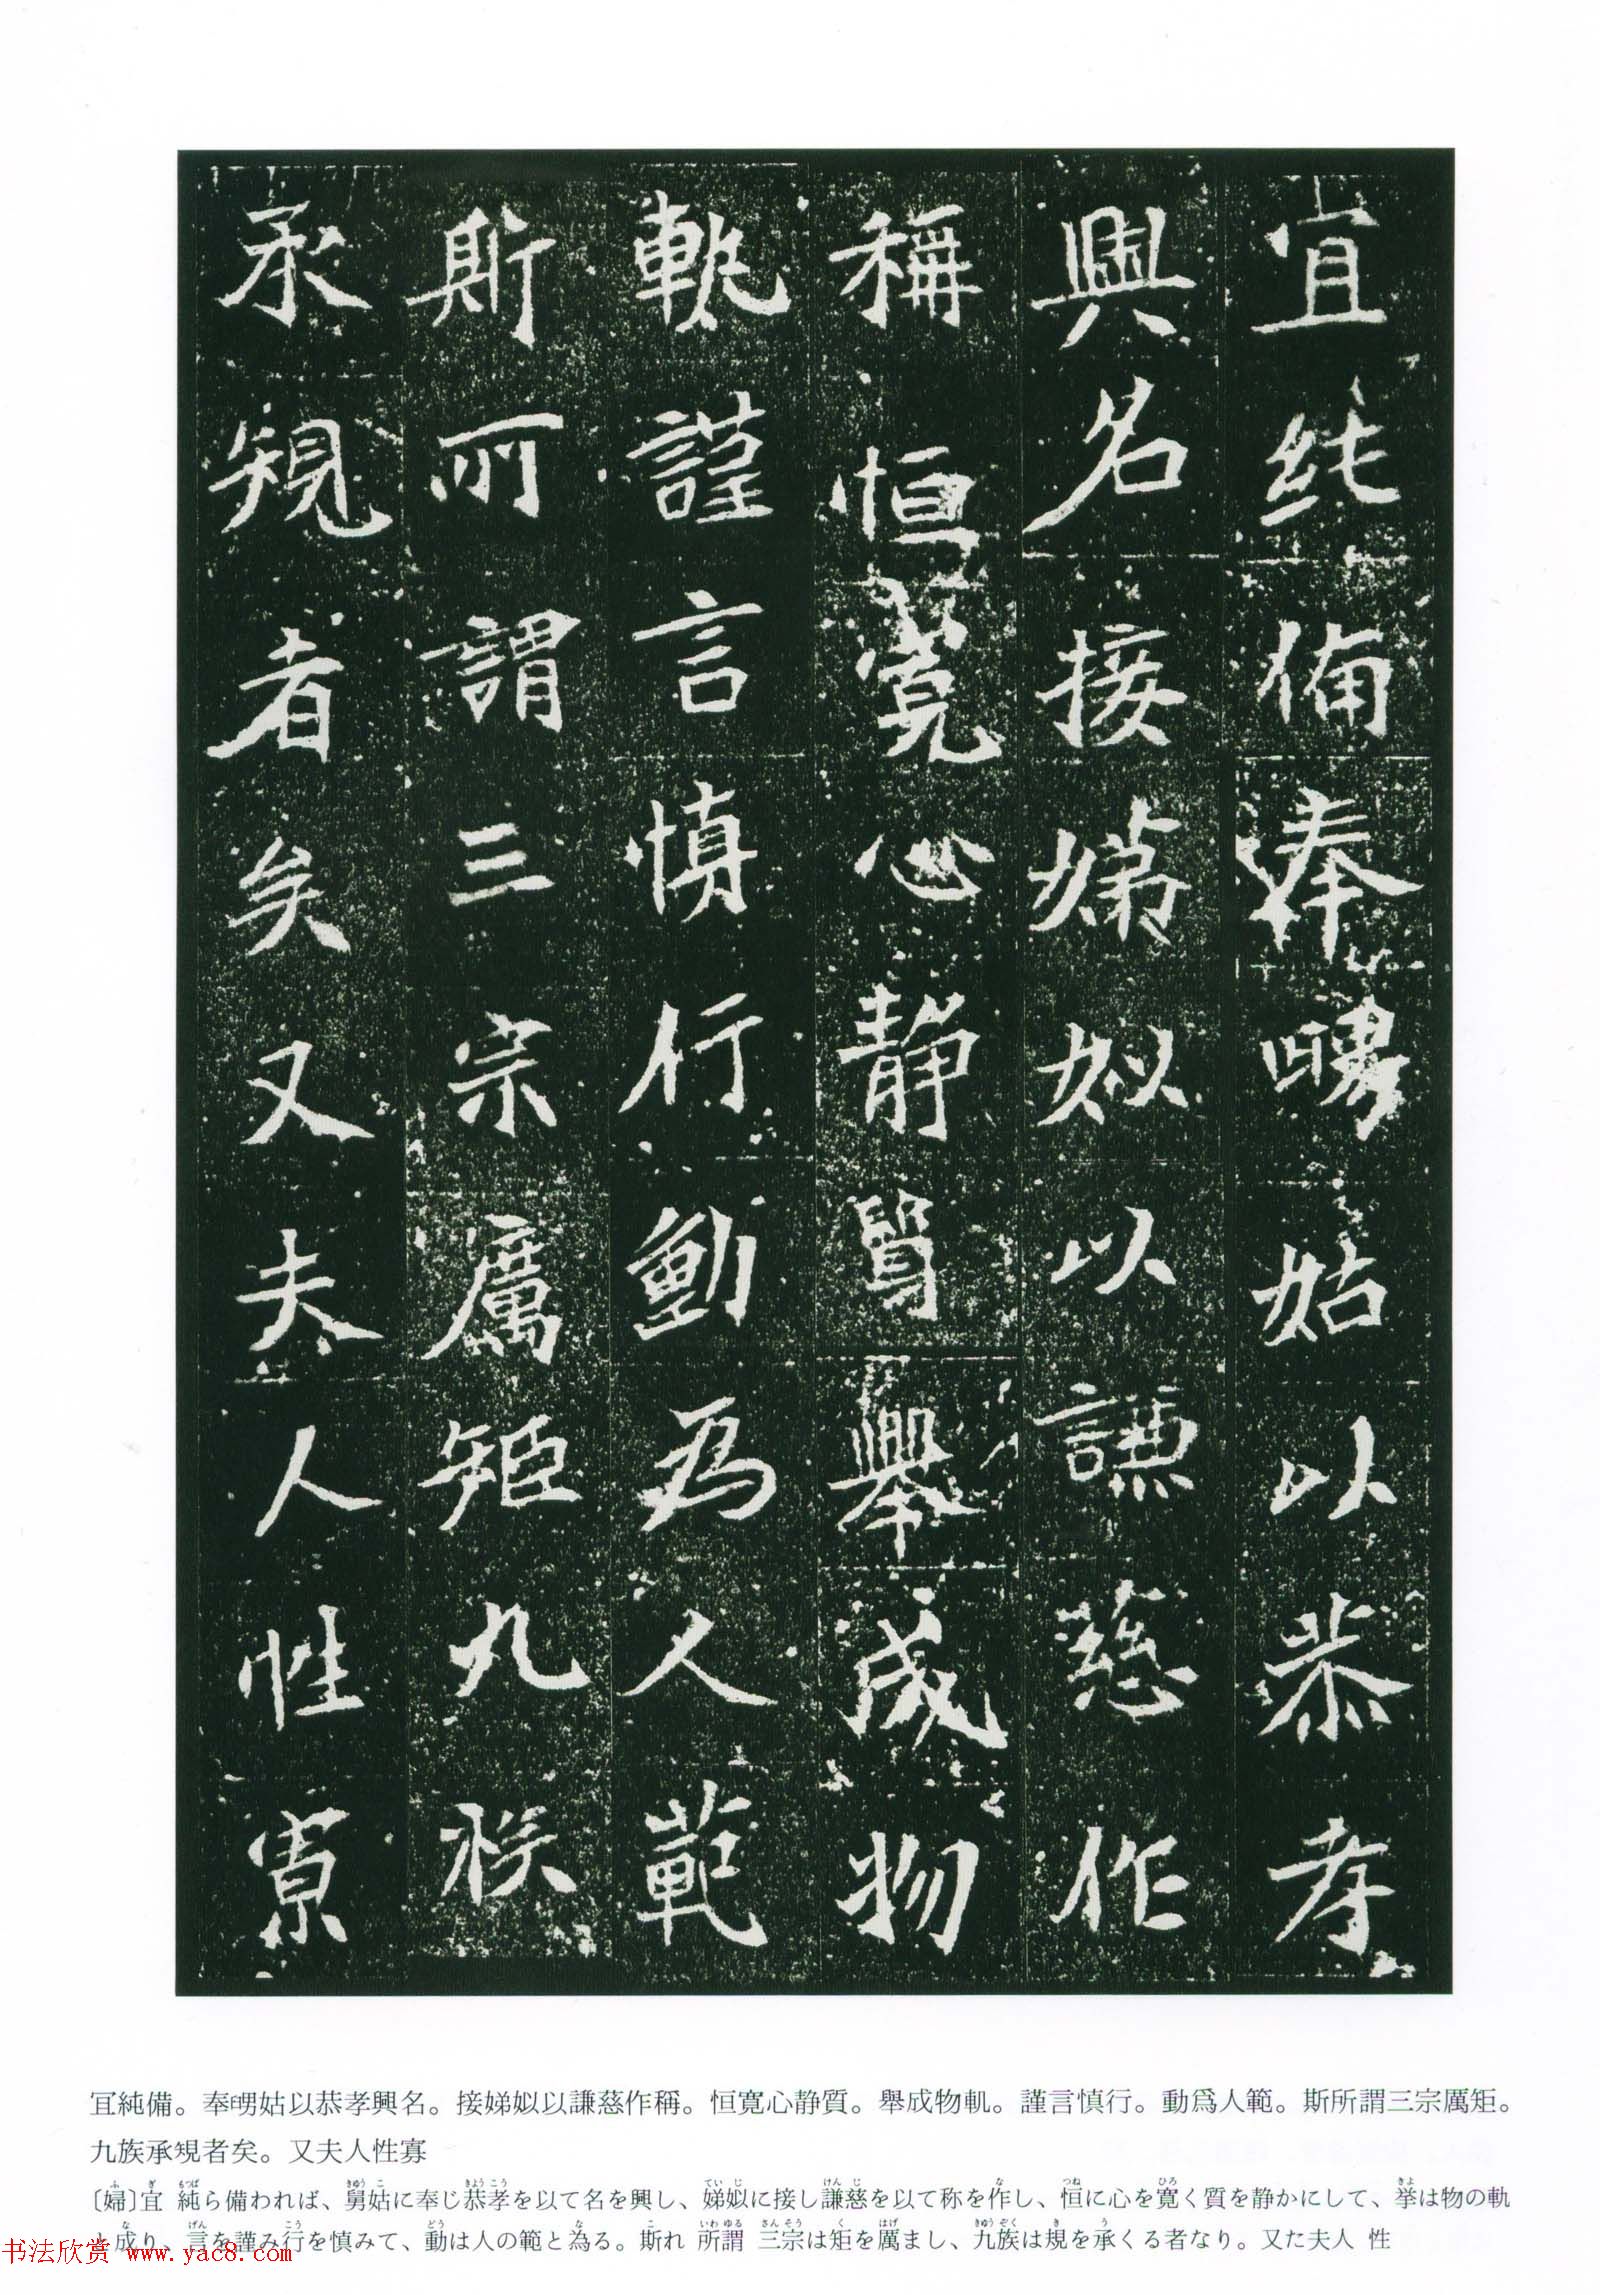 宜純備奉㽒姑以恭孝
興名接娣姒以謙慈作
稱恒寬心静質舉成物
軌謹言慎行動為人範
斯所謂三宗厲矩九族
承規者矣又夫人性寡
冝純備。奉㽒姑以恭孝興名。接娣姒以謙慈作稱。恒寬心静質。舉成物軌。謹言慎行。動爲人範。斯所謂三宗厲矩。
九族承規者矣。又夫人性寡
〔婦〕宜 純ら備われば、舅姑に奉じ恭孝を以て名を興し、娣姒に接し謙慈を以て称を作し、恒に心を寛く質を静かにして、挙は物の軌
と成り、言を謹み行を慎みて、動は人の範と為る。斯れ 所謂 三宗は矩を厲まし、九族は規を承くる者なり。又た夫人 性
书法欣赏 www.yac8.com